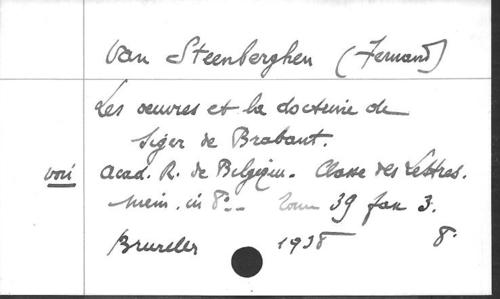 Van Steenberghen (Fernand)
Les oeuvres et la doctrine de
Siger de Brabant.
voir Acad. R. de Belgique. Classe des Lettres.
Mém. in 8°. - Tome 39 fasc 3.
Bruxelles 1938 8°